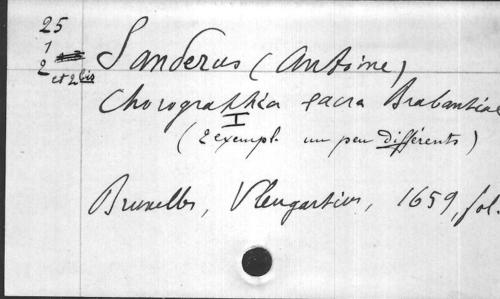 25
1
2
et 2bis
Sanderus (Antoine)
Chorographia sacra Brabantiae
I
(2 exempl. un peu différents)
Bruxelles, Vleugartius, 1659, fol.